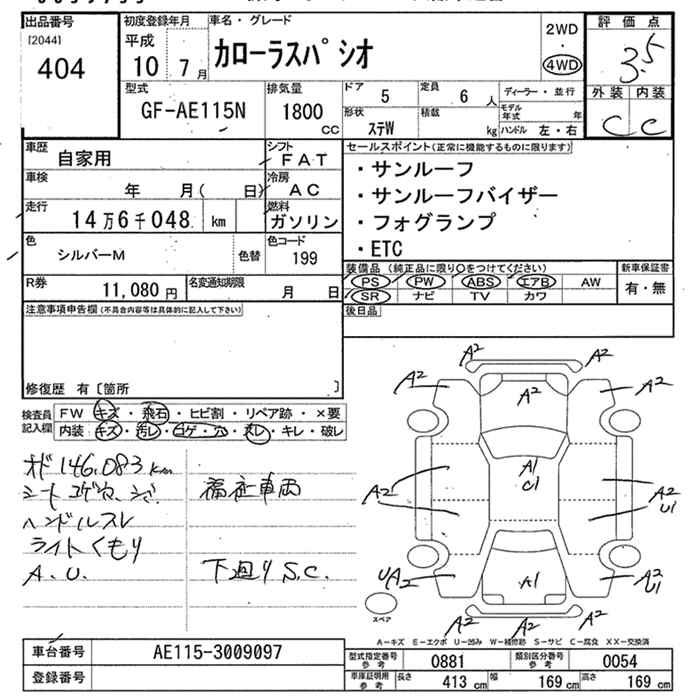 出品番号
[2044]
404
初度登録年月
平成
10 7月
車名・グレード
カローラスパシオ
2WD
・
4WD
評価点
3.5
外装 内装
C C
型式
GF-AE115N
排気量
1800
CC
ドア
5
定員
6 人
形状
ステW
積載
kg
ディーラー・並行
モデル年式 年
ハンドル 左・右
車歴
自家用
シフト
FAT
車検
年 月( 日)
冷房
AC
走行
14万6千048 km
燃料
ガソリン
色
シルバーM
色替
色コード
199
R券
11,080 円
名変通知期限
月 日
セールスポイント(正常に機能するものに限ります)
・サンルーフ
・サンルーフバイザー
・フォグランプ
・ETC
装備品(純正品に限り○をつけてください)
PS PW ABS エアB AW
SR ナビ TV カワ
新車保証書
有・無
後日品
注意事項申告欄(不具合内容等は具体的に記入して下さい)
修復歴 有〔箇所 〕
検査員記入欄
FW キズ・飛石・ヒビ割・リペア跡・×要
内装・キズ・汚レ・コゲ・穴・スレ・キレ・破レ
オド146,083km
シート コゲ穴、シミ
ハンドルスレ
ライトくもり
A.U.
福祉車両
下廻りS.C.
A2 A2
A2 A2 A2
A1
C1
A2 A2
U1
UA2 A1 A2
U1
A2 A2 A2
スペア
A－キズ E－エクボ U－凹み W－補修跡 S－サビ C－腐食 XX－交換済
車台番号
AE115-3009097
登録番号
型式指定番号
参考
0881
類別区分番号
参考
0054
車庫証明用
参考
長さ
413 cm
幅
169 cm
高さ
169 cm